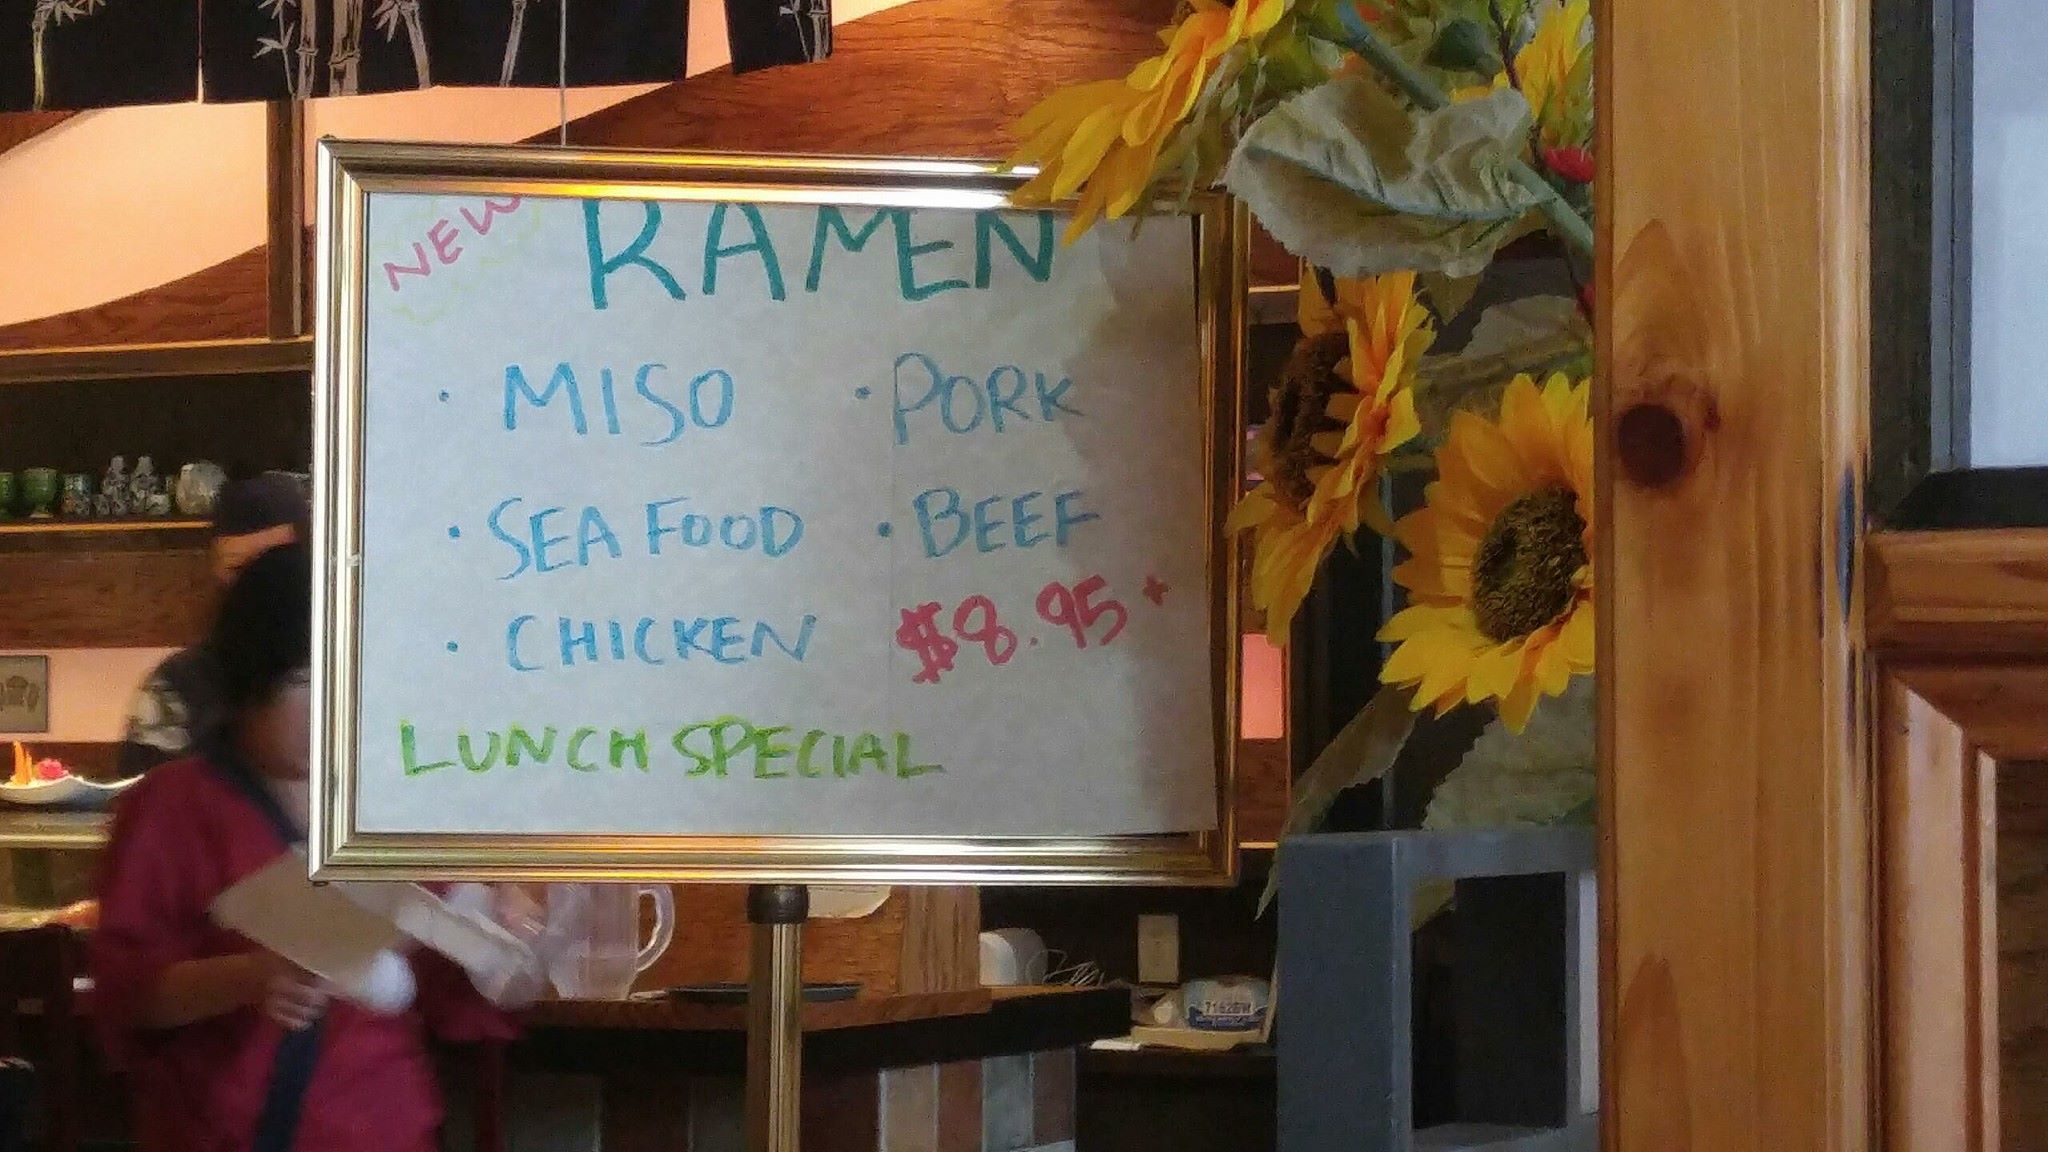 NEW RAMEN
· MISO · PORK
· SEAFOOD · BEEF
· CHICKEN $8.95+
LUNCH SPECIAL